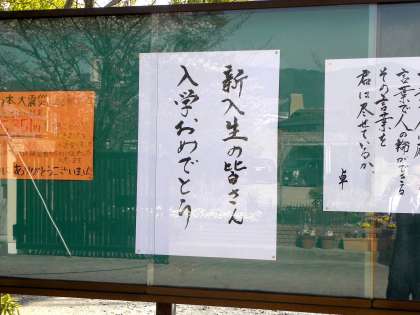 新入生の皆さん
入学おめでとう
言葉で人の輪ができる
その言葉を
君は尽せているか
卓
本大震災
ありがとうございました